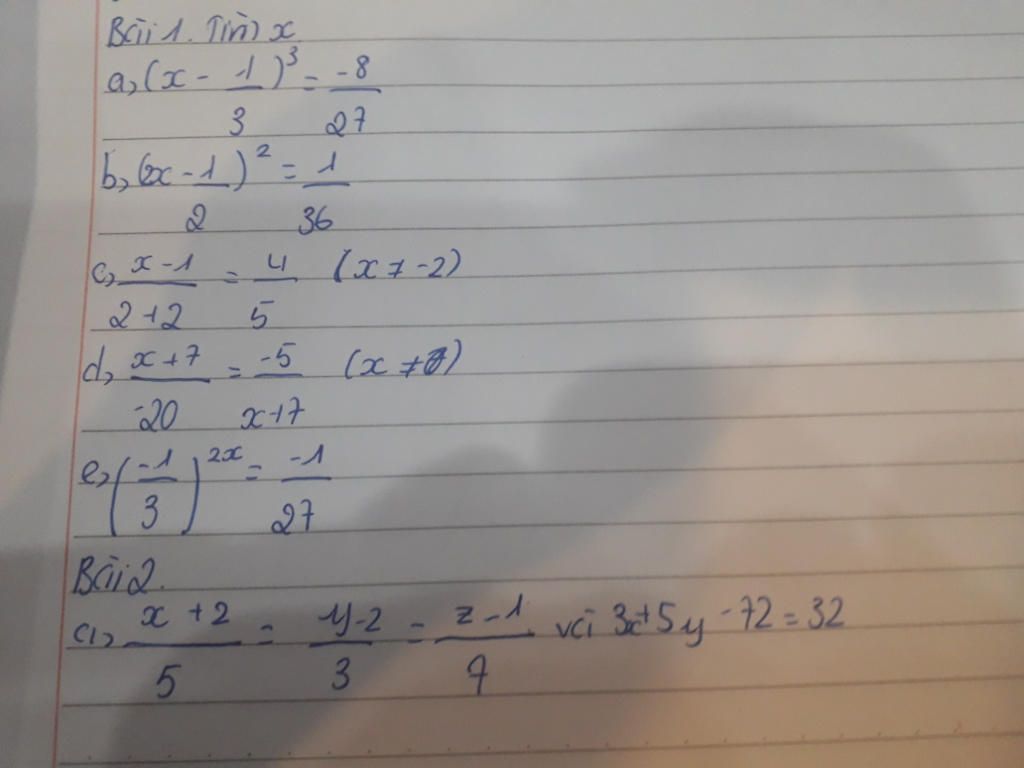 Bài 1. Tìm x
a, (x - 1/3)³ = -8/27
b, (x - 1/2)² = 1/36
c, x - 1/2+2 = 4/5 (x ≠ -2)
d, x + 7/-20 = -5/x+7
e, (-1/3)²ˣ = -1/27
Bài 2.
a, x + 2/5 = y - 2/3 = z - 1/7 và 3x + 5y - 7z = 32